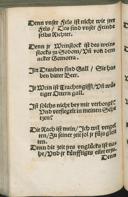 Denn vnser Fels ist nicht wie jrer
Fels / Des sind vnser Feinde
selbs Richter.
Denn jr Weinstock ist des wein-
stocks zu Sodom / Vnd von dem
acker Gomorra.
Jre Drauben sind Gall / Sie haben
bitter Beer.
Jr Wein ist Trachengifft / Vnd wü-
tiger Ottern gall.
Ist solchs nicht bey mir verborgen?
Vnd versiegelt in meinen Sche-
tzen?
Die Rach ist mein / Ich wil vergel-
ten / Zu seiner zeit sol jr fuss gleit-
ten.
Denn die zeit jres vnglücks ist na-
he / Vnd jr künfftiges eilet erzu.
Denn